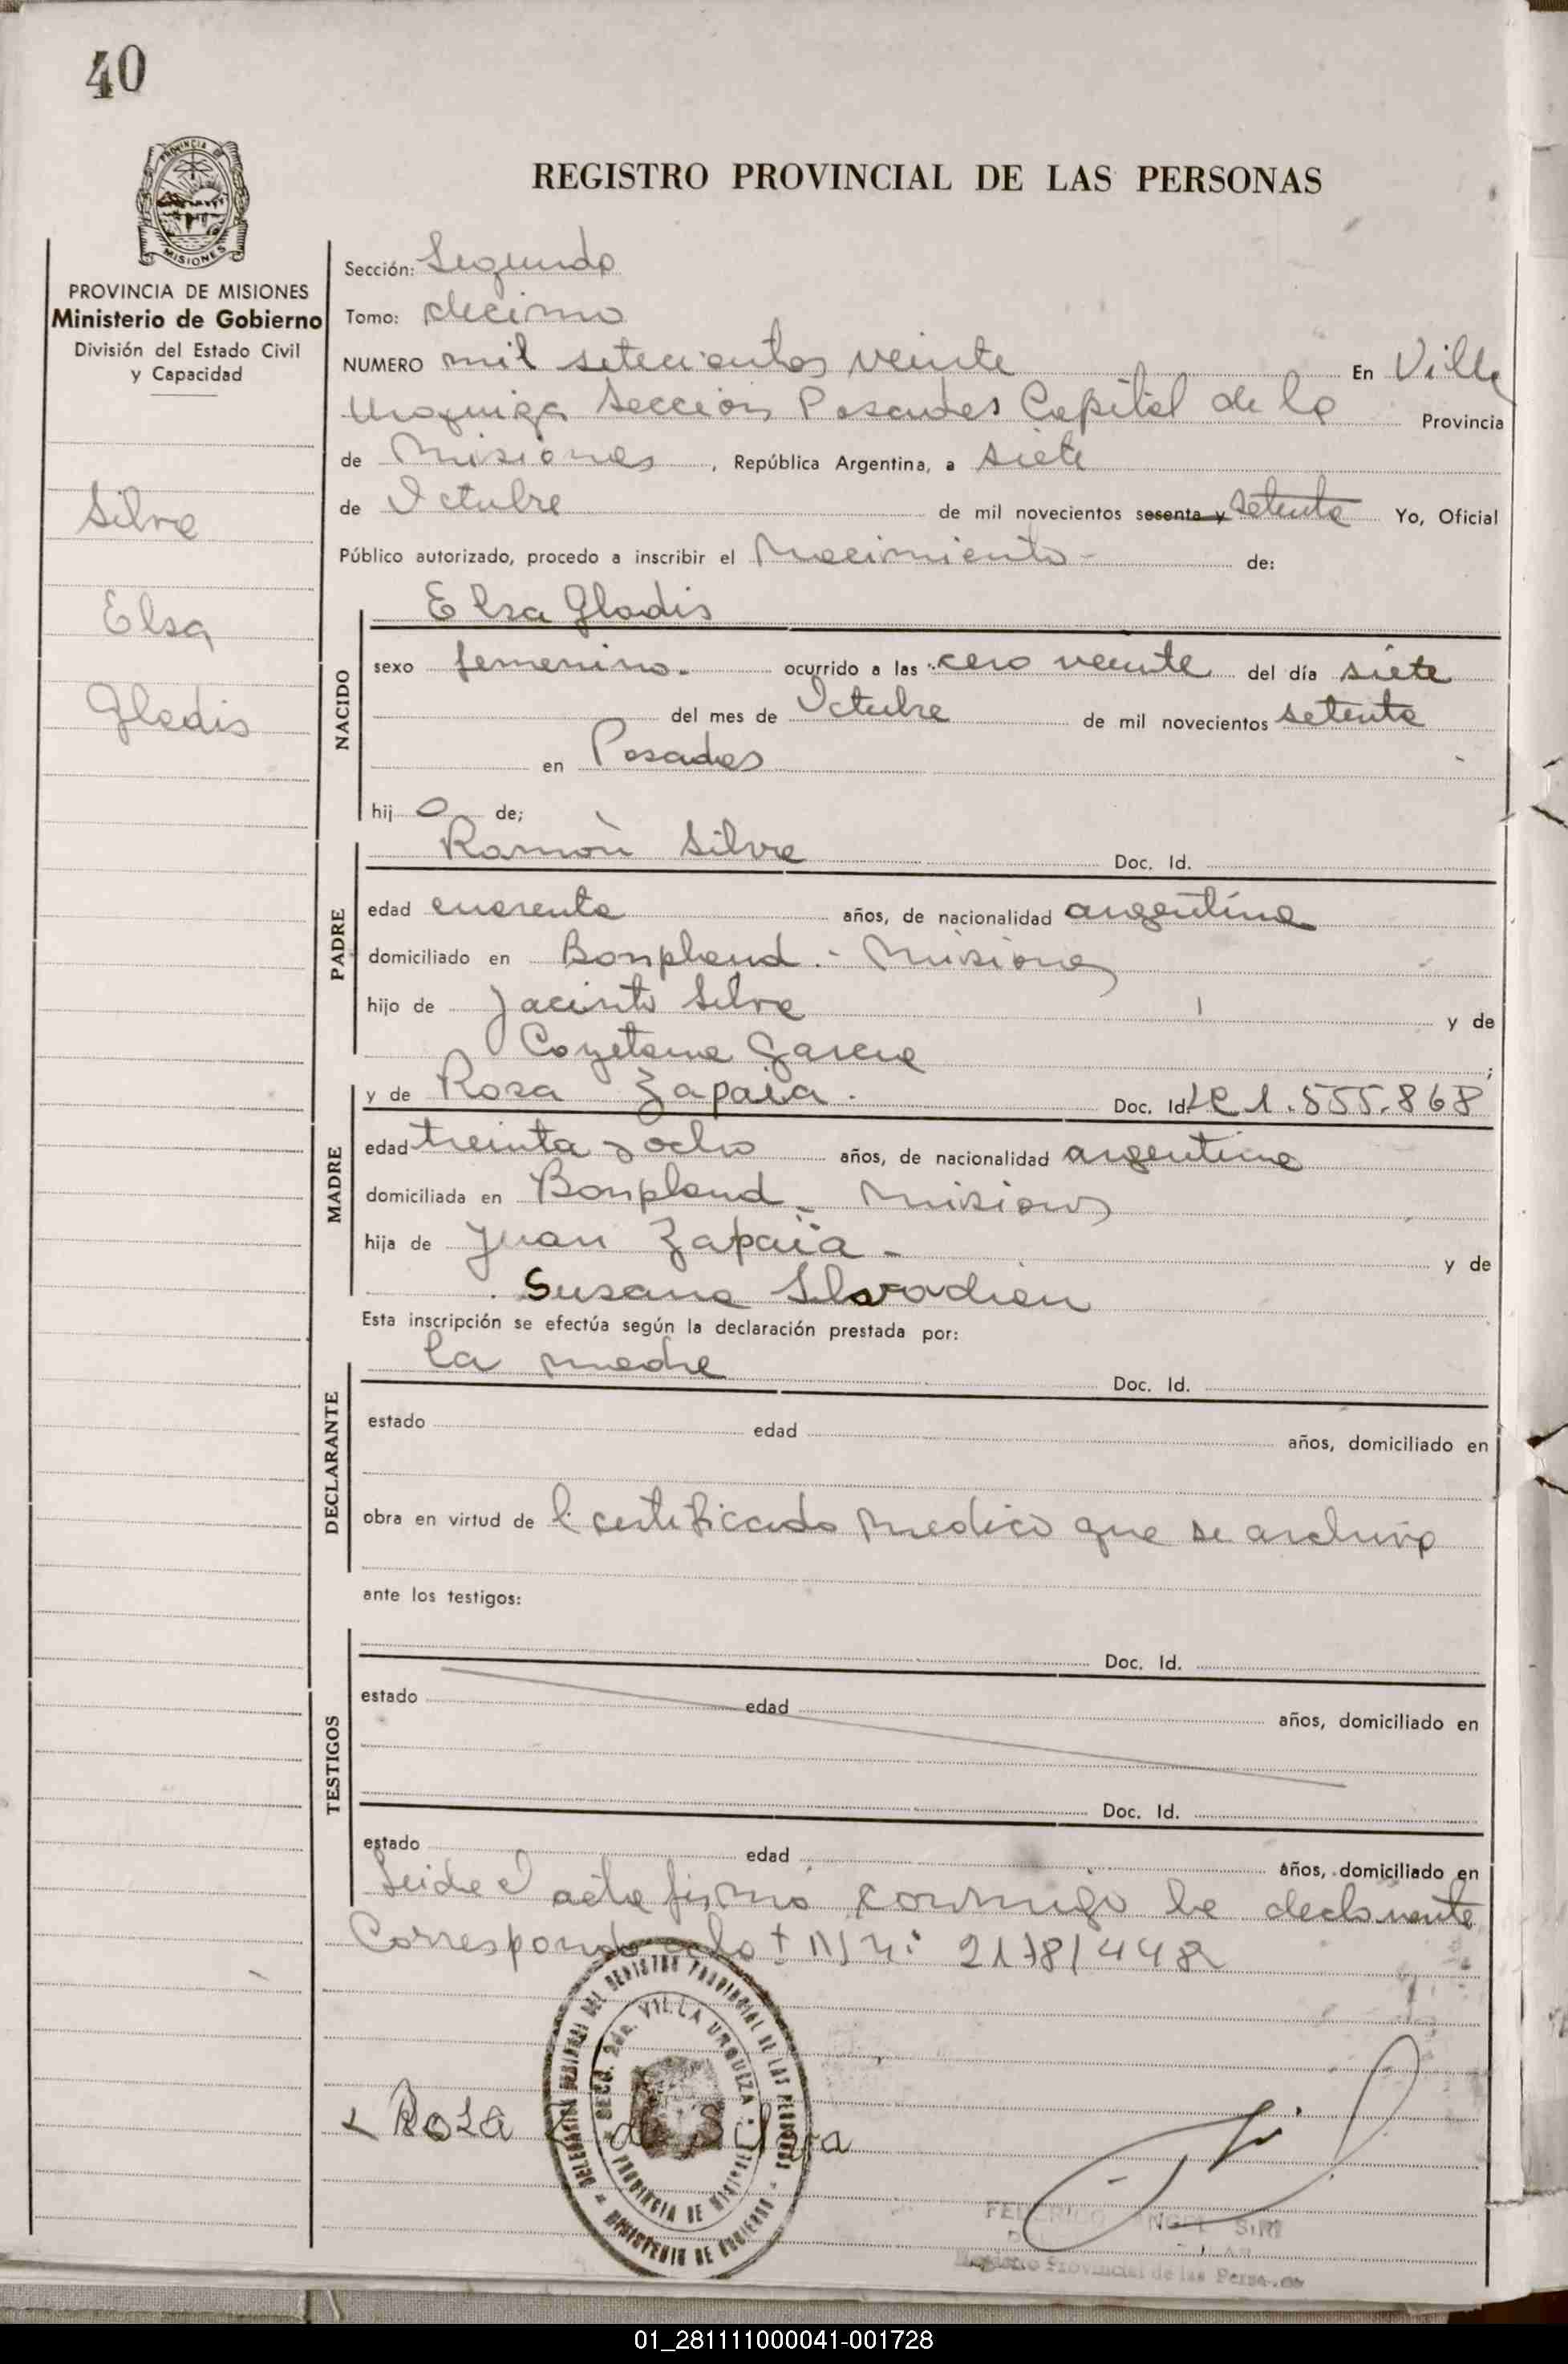 40
PROVINCIA DE
MISIONES
REGISTRO PROVINCIAL DE LAS PERSONAS
PROVINCIA DE MISIONES
Ministerio de Gobierno
División del Estado Civil
y Capacidad
Silva
Elsa
Gladis
Sección: Segunda
Tomo: decimo
NUMERO mil setecientos veinte En Villa
Urquiza Sección Posadas Capital de la Provincia
de Misiones, República Argentina, a siete
de Octubre de mil novecientos sesenta y setenta Yo, Oficial
Público autorizado, procedo a inscribir el Nacimiento - de:
Elsa Gladis
NACIDO
sexo femenino.- ocurrido a las cero veinte del día siete
del mes de Octubre de mil novecientos setenta
en Posadas
hij a de;
Ramón Silva Doc. Id.
PADRE
edad cuarenta años, de nacionalidad argentina
domiciliado en Bonpland.- Misiones
hijo de Jacinto Silva y de
Cayetana Garcia ;
y de Rosa Zapaia. Doc. Id. LC 1.555.868
MADRE
edad treinta y ocho años, de nacionalidad argentina
domiciliada en Bonpland - Misiones
hija de Juan Zapaia - y de
Susana
Esta inscripción se efectúa según la declaración prestada por:
la madre Doc. Id.
DECLARANTE
estado edad años, domiciliado en
obra en virtud de l certificado medico que se archiva
ante los testigos:
Doc. Id.
TESTIGOS
estado edad años, domiciliado en
Doc. Id.
estado edad años, domiciliado en
Leida el acta firmó conmigo la declarante
Corresponde
DELEGACION DEL REGISTRO PROVINCIAL DE LAS PERSONAS
SECC. 2da. VILLA URQUIZA
PROVINCIA DE MISIONES
MINISTERIO DE GOBIERNO
Rosa Z de Silva
FEDERICO ANGEL SIRI
Registro Provincial de las Personas
01_281111000041-001728